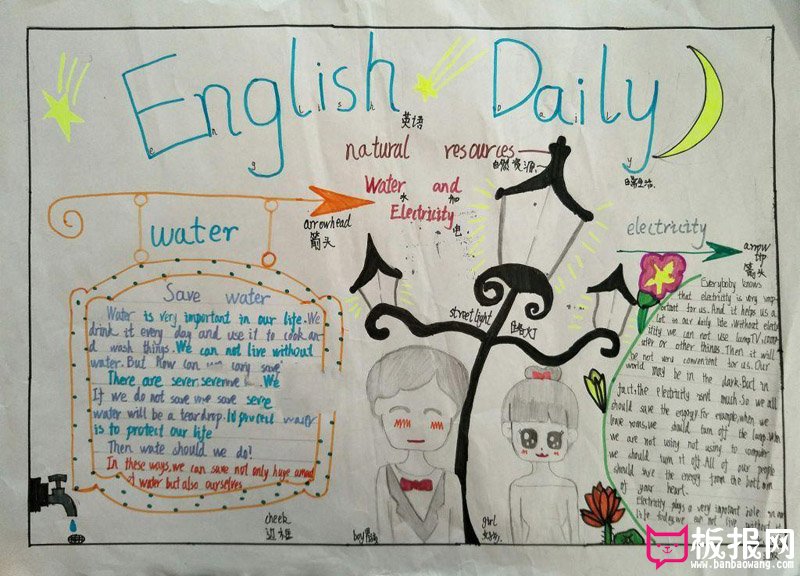 English Daily
英语
natural resources
自然资源
Water and
水 和
Electricity
电
日常生活
arrowhead
箭头
water
electricity
arrow
tip
箭头
street light
路灯
Save water
Water is very important in our life. We
drink it every day and use it to cook an
d wash things. We can not live without
water. But how can we save
There are sever
We
If we do not save
save
water will be a teardrop. To protect water
is to protect our life
Then wate should we do?
In these ways, we can save not only huge amount
of water but also ourselves
Everybaby knows
that electricity is very imp
ortant for us. And it helps us a
lot in our daily life. Without elect
ricity we can not use lamp, TV, comp
uter or other things. Then it will
be not very convenient for us. Our
world may be in the dark. But in
fact, the electricity much. So we all
should save the energy. For example, when we
leave rooms, we should turn off the lamp. When
we are not using computer
we should turn it off. All of our people
should save the energy from the bottom
of your heart.
Electricity plays a very important role in our
life today. we can not live without it
cheek
边框
boy
girl
板报网
www.banbaowang.com